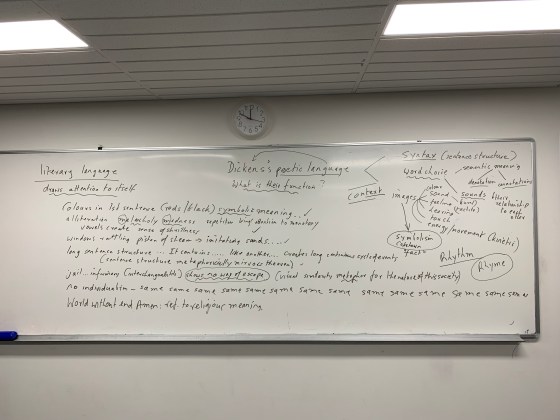 literary language
draws attention to itself
Dickens's poetic language
What is their function?
context
syntax (sentence structure)
word choice
semantic meaning
denotation
connotations
images
colour
sound
feeling
touch
energy/movement (kinetic)
sounds
their relationship to each other
symbolism
Rhythm
Rhyme
Colours in 1st sentence (reds/black) symbolic meaning...
alliteration melancholy madness repetition bring attention to monotony
vowels create sense of shrillness
windows rattling piston of steam → imitating sounds...
long sentence structure ... It contains ..... like another... creates long continuous cycle of monotony
(sentence structure metaphorically mirrors theme)
jail...infirmary (interchangeable) shows no way of escape (visual similarity metaphor for the nature of this society)
no individuation - same same same same same same same same same same same same same same same
World without end Amen: ref. to religious meaning